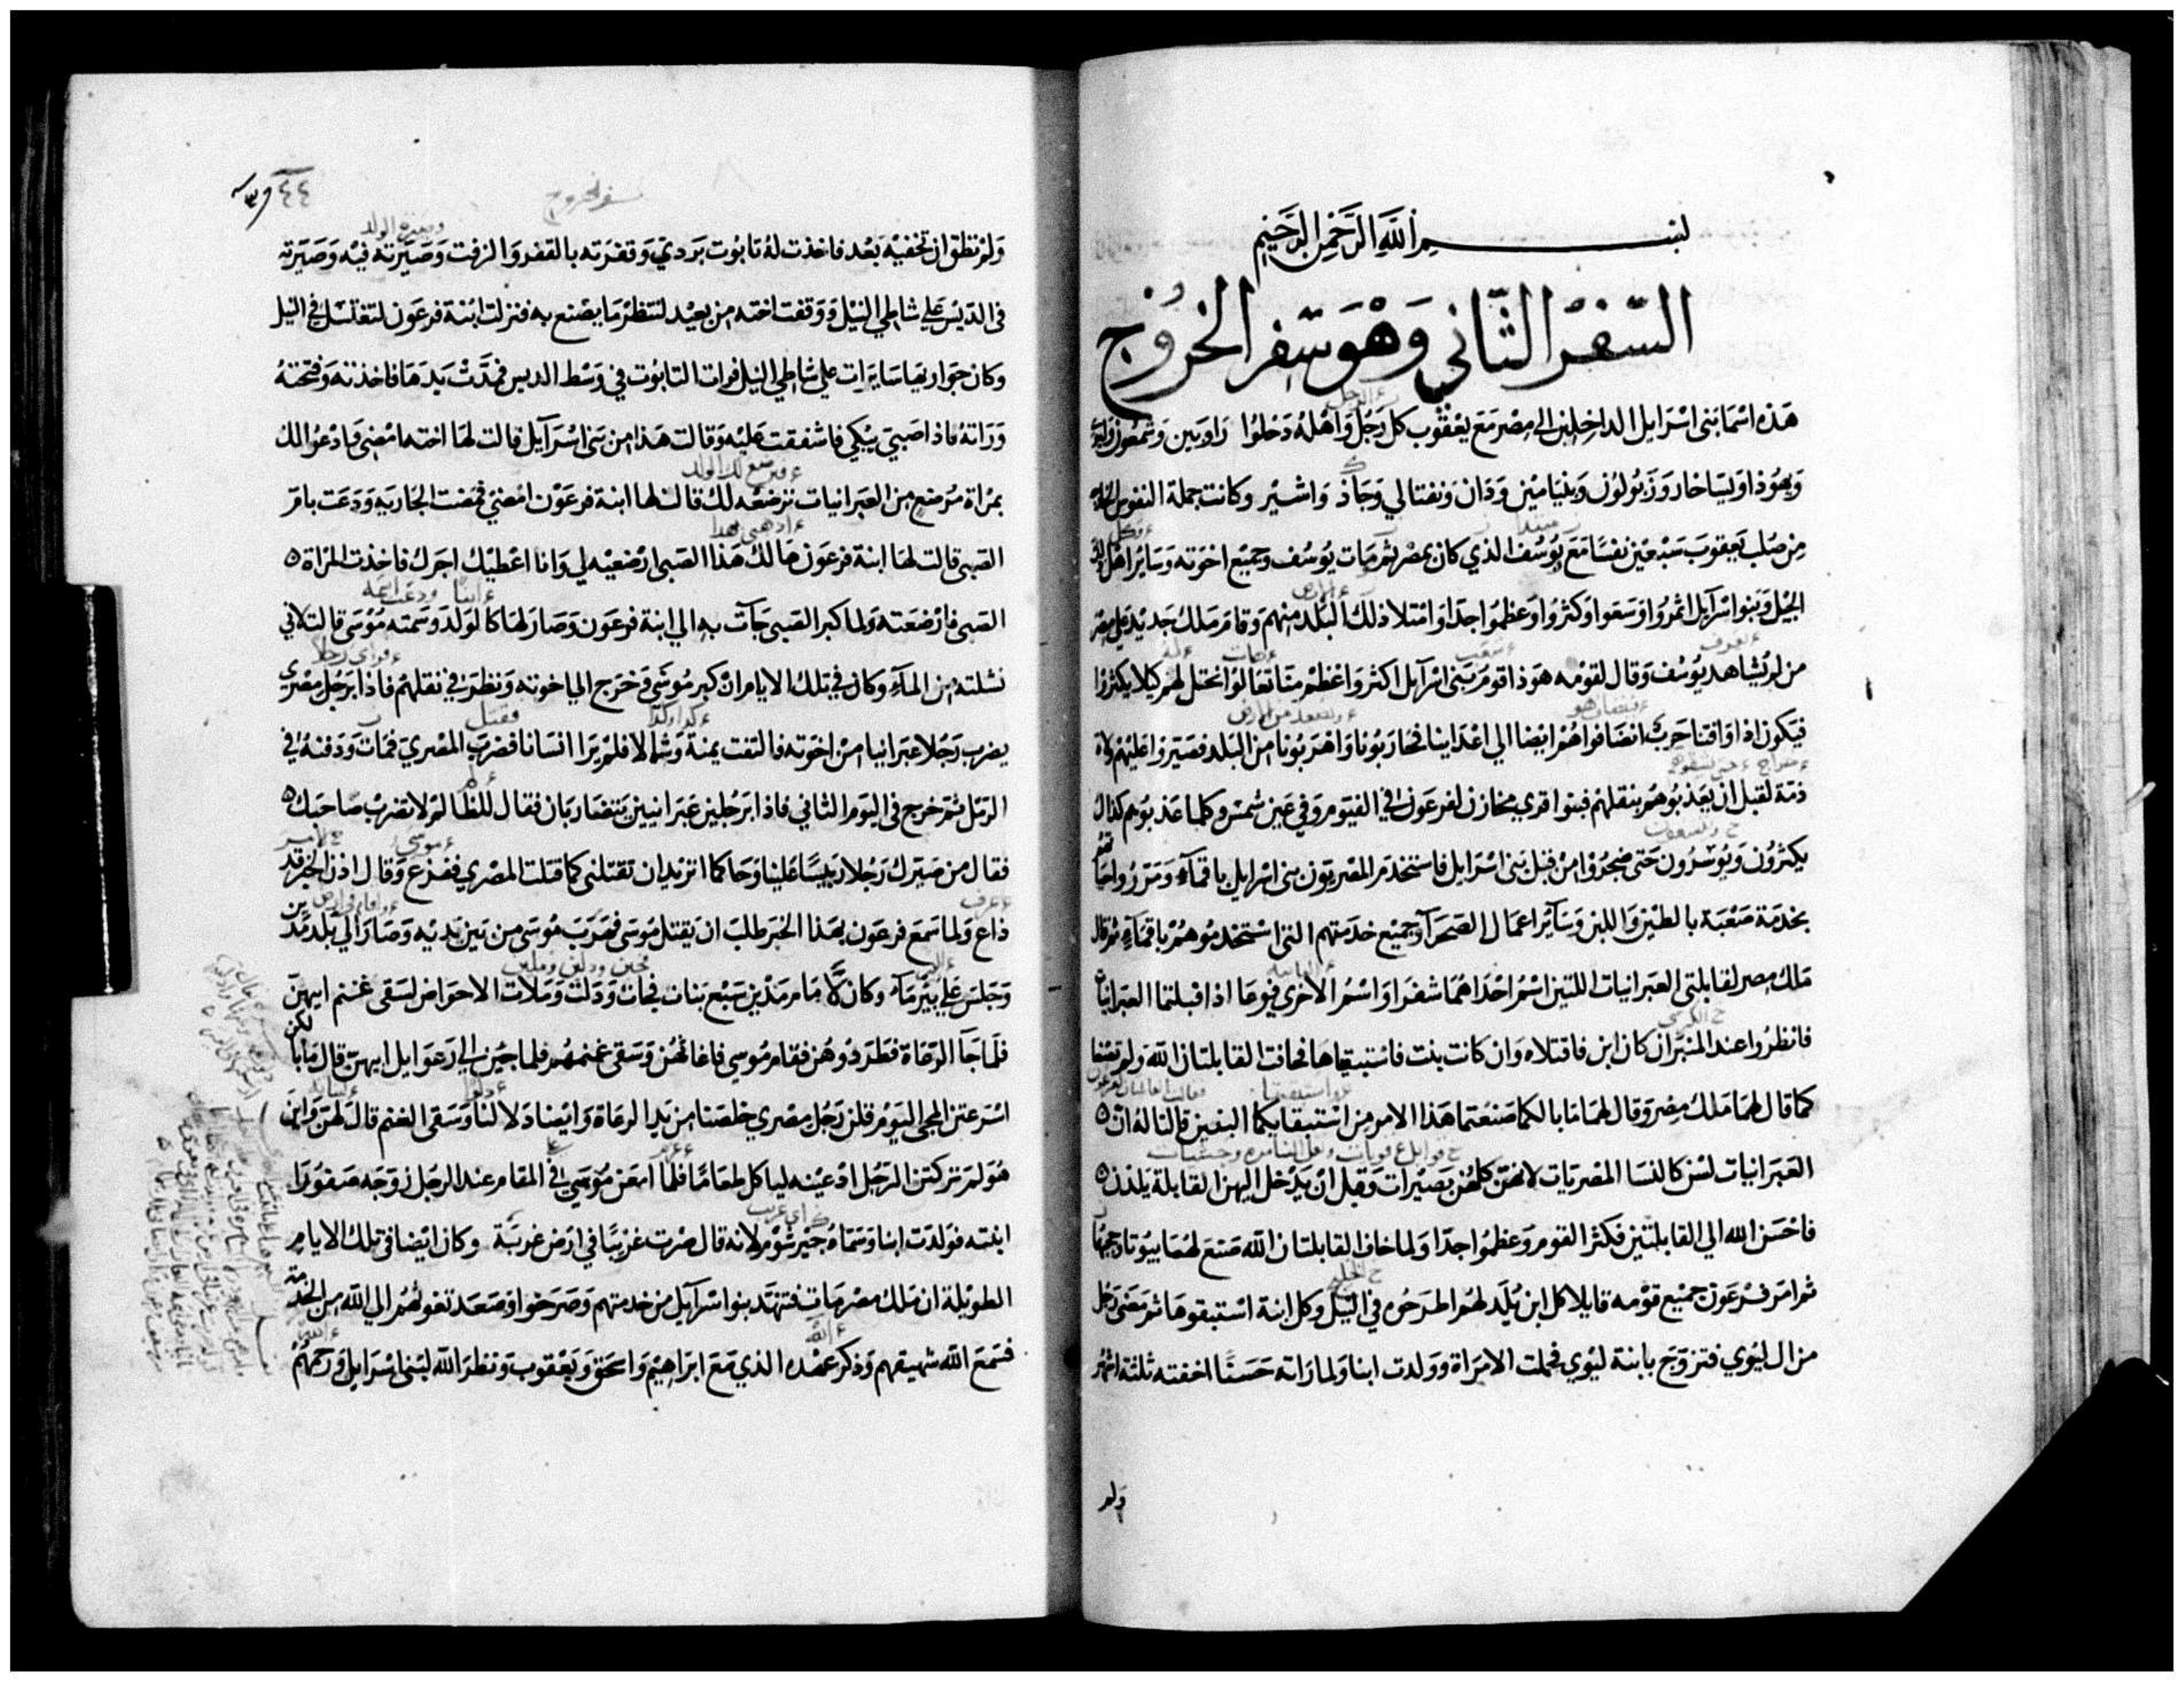 بسم الله الرحمن الرحيم
السفر الثاني وهو سفر الخروج
هذه اسما بنى اسرايل الداخلين الى مصر مع يعقوب كل رجل واهله دخلوا راوبين وشمعون
ويهوذا ويساخار وزبولون وبنيامين ودان ونفتالي وجاذ واشير وكانت جملة النفوس
من صلب يعقوب سبعين نفسا مع يوسف الذي كان بمصر ثم مات يوسف وجميع اخوته وساير اهل ذلك
الجيل وبنوا اسرآيل اثمروا وسعوا وكثروا وعظموا جدا وامتلا ذلك البلد منهم وقام ملك جديد على مصر
من لم يشاهد يوسف وقال لقومه هوذا قوم بنى اسرآيل اكثر واعظم منا تعالوا نحتل لهم كيلا يكثروا
فيكون اذا وافتنا حرب انضافوا هم ايضا الي اعداينا فحاربونا واهربونا من البلد فصيروا عليهم ولاة
ذمة لقبل ان يعذبوهم بثقلهم فبنوا قري مخازن لفرعون في الفيوم وفي عين شمس وكلما عذبوهم كذلك
يكثرون ويوسرون حتى ضجروا من قبل بنى اسرايل فاستخدم المصريون بنى اسرايل باقمآء ومرروا حياتهم
بخدمة صعبة بالطين واللبن وسآير اعمال الصحرآ وجميع خدمتهم التى استخدموهم باقمآء ثم قال
ملك مصر لقابلتى العبرانيات اللتين اسم احداهما شفرا واسم الاخرى فوعا اذا قبلتما العبرانيات
فانظروا عند المنبر ان كان ابن فاقتلاه وان كانت بنت فاستبقياها فخافت القابلتان الله ولم تصنعا
كما قال لهما ملك مصر وقال لهما ما بالكما صنعتما هذا الامر من استبقايكما البنين قالتا له ان
العبرانيات لسن كالنسا المصريات لانهن كلهن بصيرات وقبل ان يدخل اليهن القابلة يلدن
فاحسن الله الي القابلتين فكثر القوم وعظموا جدا ولما خاف القابلتان الله صنع لهما بيوتا
ثم امر فرعون جميع قومه قايلا كل ابن يلد لهم اطرحوه في النيل وكل ابنة استبقوها ثم مضى رجل
من ال ليوي فتزوج بابنة ليوي فحملت الامراة وولدت ابنا ولما راته حسنا اخفته ثلثة اشهر
ولم
سفر الخروج
٤٤
ولم تطق ان تخفيه بعد فاخذت له تابوت بردي وقفرته بالقفر والزفت وصيرته فيه وصيرته
فى الديس على شاطي النيل ووقفت اخته من بعيد لتنظر ما يصنع به فنزلت ابنة فرعون لتغتسل في النيل
وكان جواريها سايرات علي شاطي النيل فرات التابوت في وسط الديس فمدت يدها فاخذته وفتحته
وراته فاذا صبي يبكي فاشفقت عليه وقالت هذا من بنى اسرآيل قالت لها اخته امضي فادعوا لك
بمراة مرضع من العبرانيات ترضعه لك قالت لها ابنة فرعون امضي فمضت الجارية ودعت بام
الصبى قالت لها ابنة فرعون هالك هذا الصبى ارضعيه لي وانا اعطيك اجرك فاخذت المراة
الصبى فارضعته ولما كبر الصبى جآت به الي ابنة فرعون وصار لها كالولد وسمته موسى قالت لاني
نشلته من المآء وكان في تلك الايام ان كبر موسى فخرج الي اخوته ونظر في ثقلهم فاذا برجل مصري
يضرب رجلا عبرانيا من اخوته فالتفت يمنة وشمالا فلم يرا انسانا فضرب المصري فمات ودفنه في
الرمل ثم خرج فى اليوم الثاني فاذا برجلين عبرانيين يتضاربان فقال للظالم لا تضرب صاحبك
فقال من صيرك رجلا رييسا علينا وحاكما اتريد ان تقتلنى كما قتلت المصري ففزع وقال اذن الخبر قد
ذاع ولما سمع فرعون بهذا الخبر طلب ان يقتل موسى فهرب موسى من بين يديه وصار الي بلد مدين
وجلس علي بير مآء وكان لامام مدين سبع بنات فجات ودلت وملات الاحواض لسقى غنم ابيهن
فلما جآ الرعاة فطردوهن فقام موسي فاغاثهن وسقى غنمهم فلما جين الي رعوايل ابيهن قال ما بالكن
اسرعتن المجى اليوم قلن رجل مصري خلصنا من يد الرعاة وايضا دلا لنا وسقى الغنم قال لهن واين
هو لم تركتن الرجل ادعينه لياكل طعاما فلما امعن موسي في المقام عند الرجل زوجه صفورا
ابنته فولدت ابنا وسماه جيرشوم لانه قال صرت غريبا في ارض غربة وكان ايضا في تلك الايام
الطويلة ان ملك مصر مات فتنهد بنوا اسرآيل من خدمتهم وصرخوا وصعد تغوثهم الي الله من الخدمة
فسمع الله شهيقهم وذكر عهده الذي مع ابراهيم واسحق ويعقوب ونظر الله لبنى اسرايل ورحمهم